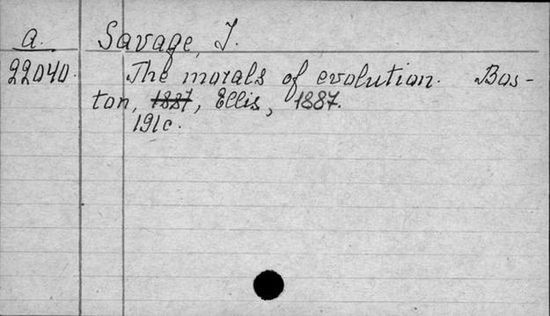 a. Savage, J.
22040. The morals of evolution. Bos-
ton, 1887, Ellis, 1887.
191c.